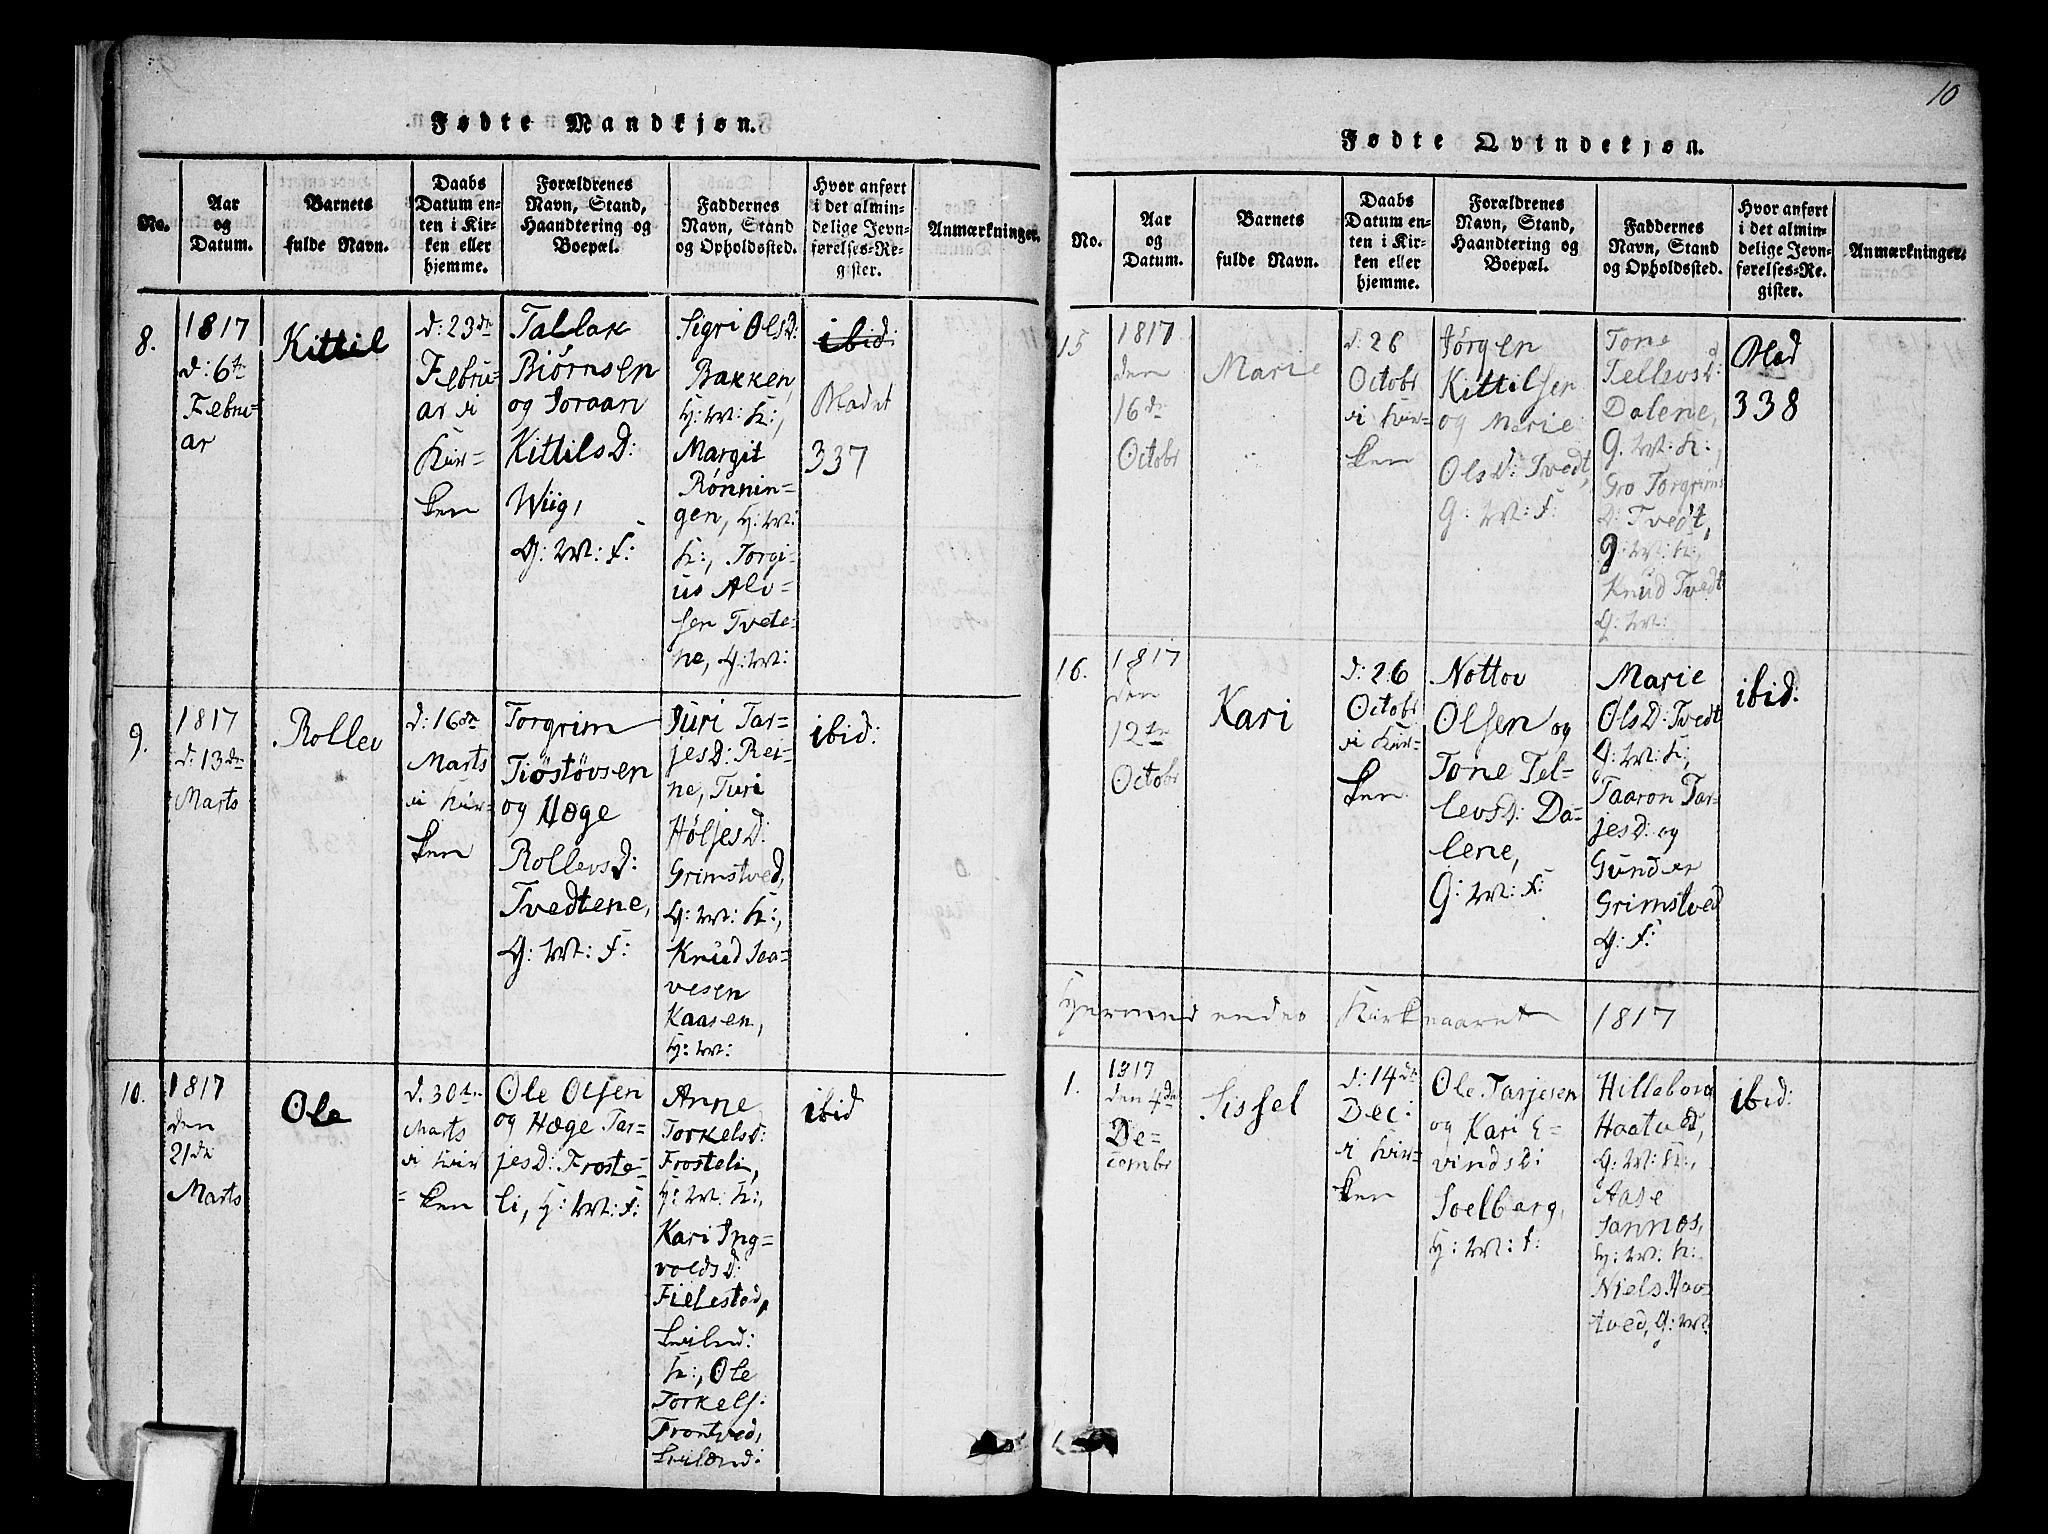 10
Fødte Mandkjøn.
No.
Aar
og
Datum.
Barnets
fulde Navn.
Daabs
Datum en-
ten i Kir-
ken eller
hjemme.
Forældrenes
Navn, Stand,
Haandtering og
Boepæl.
Faddernes
Navn, Stand
og Opholdssted.
Hvor anført
i det almin-
delige Jevn-
førelses-Re-
gister.
Anmærkninger.
8.
1817
d: 6te
Febru-
ar
Kittil
d: 23de
Febru-
ar i
Kir-
ken
Tallak
Biörnsen
og Joraan
KittilsD:
Wiig,
G: M: F:
Sigri OlsD:
Bakken,
H: M: K:,
Margit
Rönnin-
gen, H: M:
K:, Torgi-
us Alv-
sen Tvete-
ne, G: M:
ibid:
Bladet
337
9.
1817
d: 13de
Marts
Rollev
d: 16de
Marts
i Kir-
ken
Torgrim
Tiöstövsen
og Hæge
RollevsD:
Tvedtene,
G: M: F:
Juri Tar-
jesD: Rei-
ne, Turi
HöljesD:
Grimstved,
G: M: K:,
Knud Saa-
vesen
Kaasen,
H: M:
ibid:
10.
1817
den
21de
Marts
Ole
d. 30te
Marts
i Kir
-ken
Ole Olsen
og Hæge Tar-
jesD: Froste-
li, H: M: F:
Anne
TorkelsD:
Frosteli,
H: M: K:,
Kari Ing-
voldsD:
Fielestad,
K:, Ole
Torkels:
ibid
Fødte Qvindekjøn.
No.
Aar
og
Datum.
Barnets
fulde Navn.
Daabs
Datum en-
ten i Kir-
ken eller
hjemme.
Forældrenes
Navn, Stand,
Haandtering og
Boepæl.
Faddernes
Navn, Stand
og Opholdssted.
Hvor anført
i det almin-
delige Jevn-
førelses-Re-
gister.
Anmærkninger.
15
1817
den
16de
Octobr
Marie
d: 26
Octobr
i Kir-
ken
Jörgen
Kittilsen
og Marie
OlsD: Tvedt,
G: M: F:
Tone
TellevsD:
Dalene,
G. M: K:,
Gro Torgrims
D: Tvedt,
G: M: K:,
Knud Tvedt
G: M:
Blad
338
16.
1817
den
12te
Octobr
Kari
d: 26
Octobr
i Kir-
ken
Nottov
Olsen og
Tone Tel-
levsD: Da-
lene,
G: M: F:
Marie
OlsD: Tvedt
G: M: K:,
Taaron Tar-
jesD: og
Gunder
Grimstved
G: F:
ibid:
Hermed endes Kirkeaaret 1817
1.
1817
den 4de
De-
cembr
Sissel
d: 14de
Dec:
i Kir-
ken
Ole Tarjesen
og Kari E-
vindsD:
Soelberg,
H: M: F:
Hilleborg
Haatvedt,
G: M: K:,
Aase
Sannes,
H: M: K:
Niels Haa-
tved, G: M:
ibid: